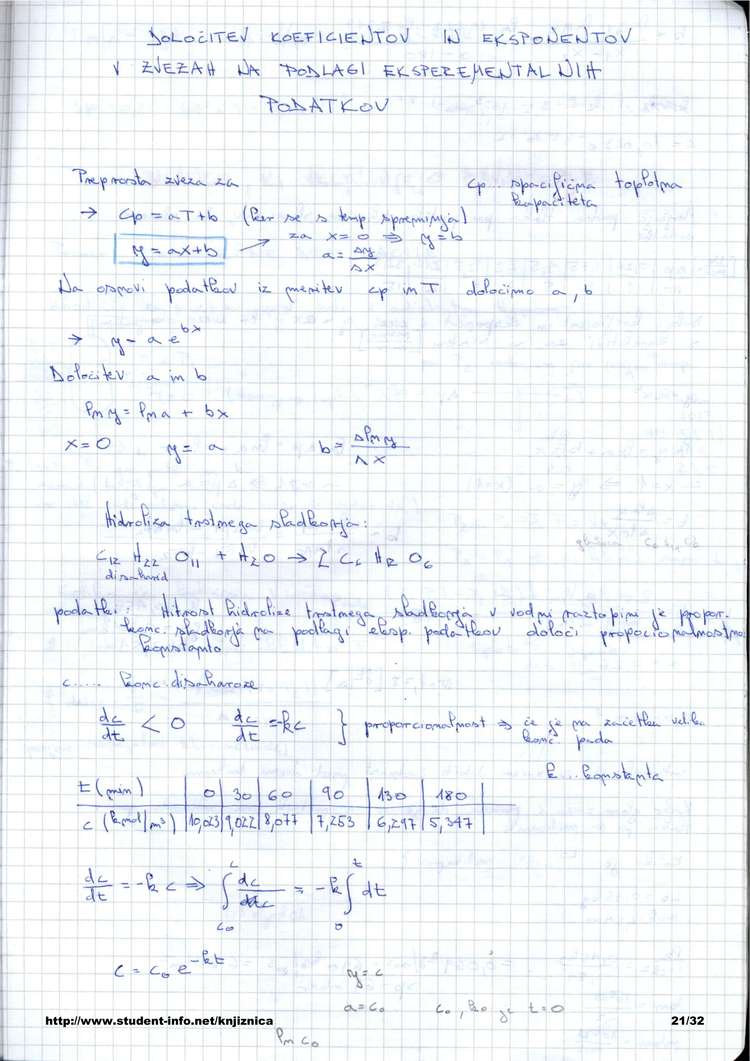 DOLOČITEV KOEFICIENTOV IN EKSPONENTOV
V ZVEZAH NA PODLAGI EKSPEREMENTALNIH
PODATKOV
Preprosta zveza za cp... spacifična toplotna
kapaciteta
→ cp = aT + b (ker se s temp spreminja)
za x = 0 ⇒ y = b
y = ax + b a = Δy/Δx
Na osnovi podatkov iz meritev cp in T določimo a, b
→ y = a e^bx
Določitev a in b
ln y = ln a + bx
x = 0 y = a b = Δln y/Δx
Hidroliza trstnega sladkorja:
C12 H22 O11 + H2O → 2 C6 H12 O6
disaharid
podatki: Hitrost hidrolize trstnega sladkorja v vodni raztopini je propor.
konc. sladkorja na podlagi eksp. podatkov določi propocionalnostno
konstanto
c..... konc. disaharoze
dc/dt < 0 dc/dt = -kc } proporcionalnost ⇒ če je na začetku velika
konc. pada
k... konstanta
t (min) 0 30 60 90 130 180
c (kmol/m³) 10,023 9,022 8,077 7,253 6,297 5,347
dc/dt = -k c ⇒ ∫_c0^c dc/c = -k ∫_0^t dt
c = c0 e^-kt y = c
a = c0 c0, ko je t = 0
http://www.student-info.net/knjiznica 21/32
ln c0